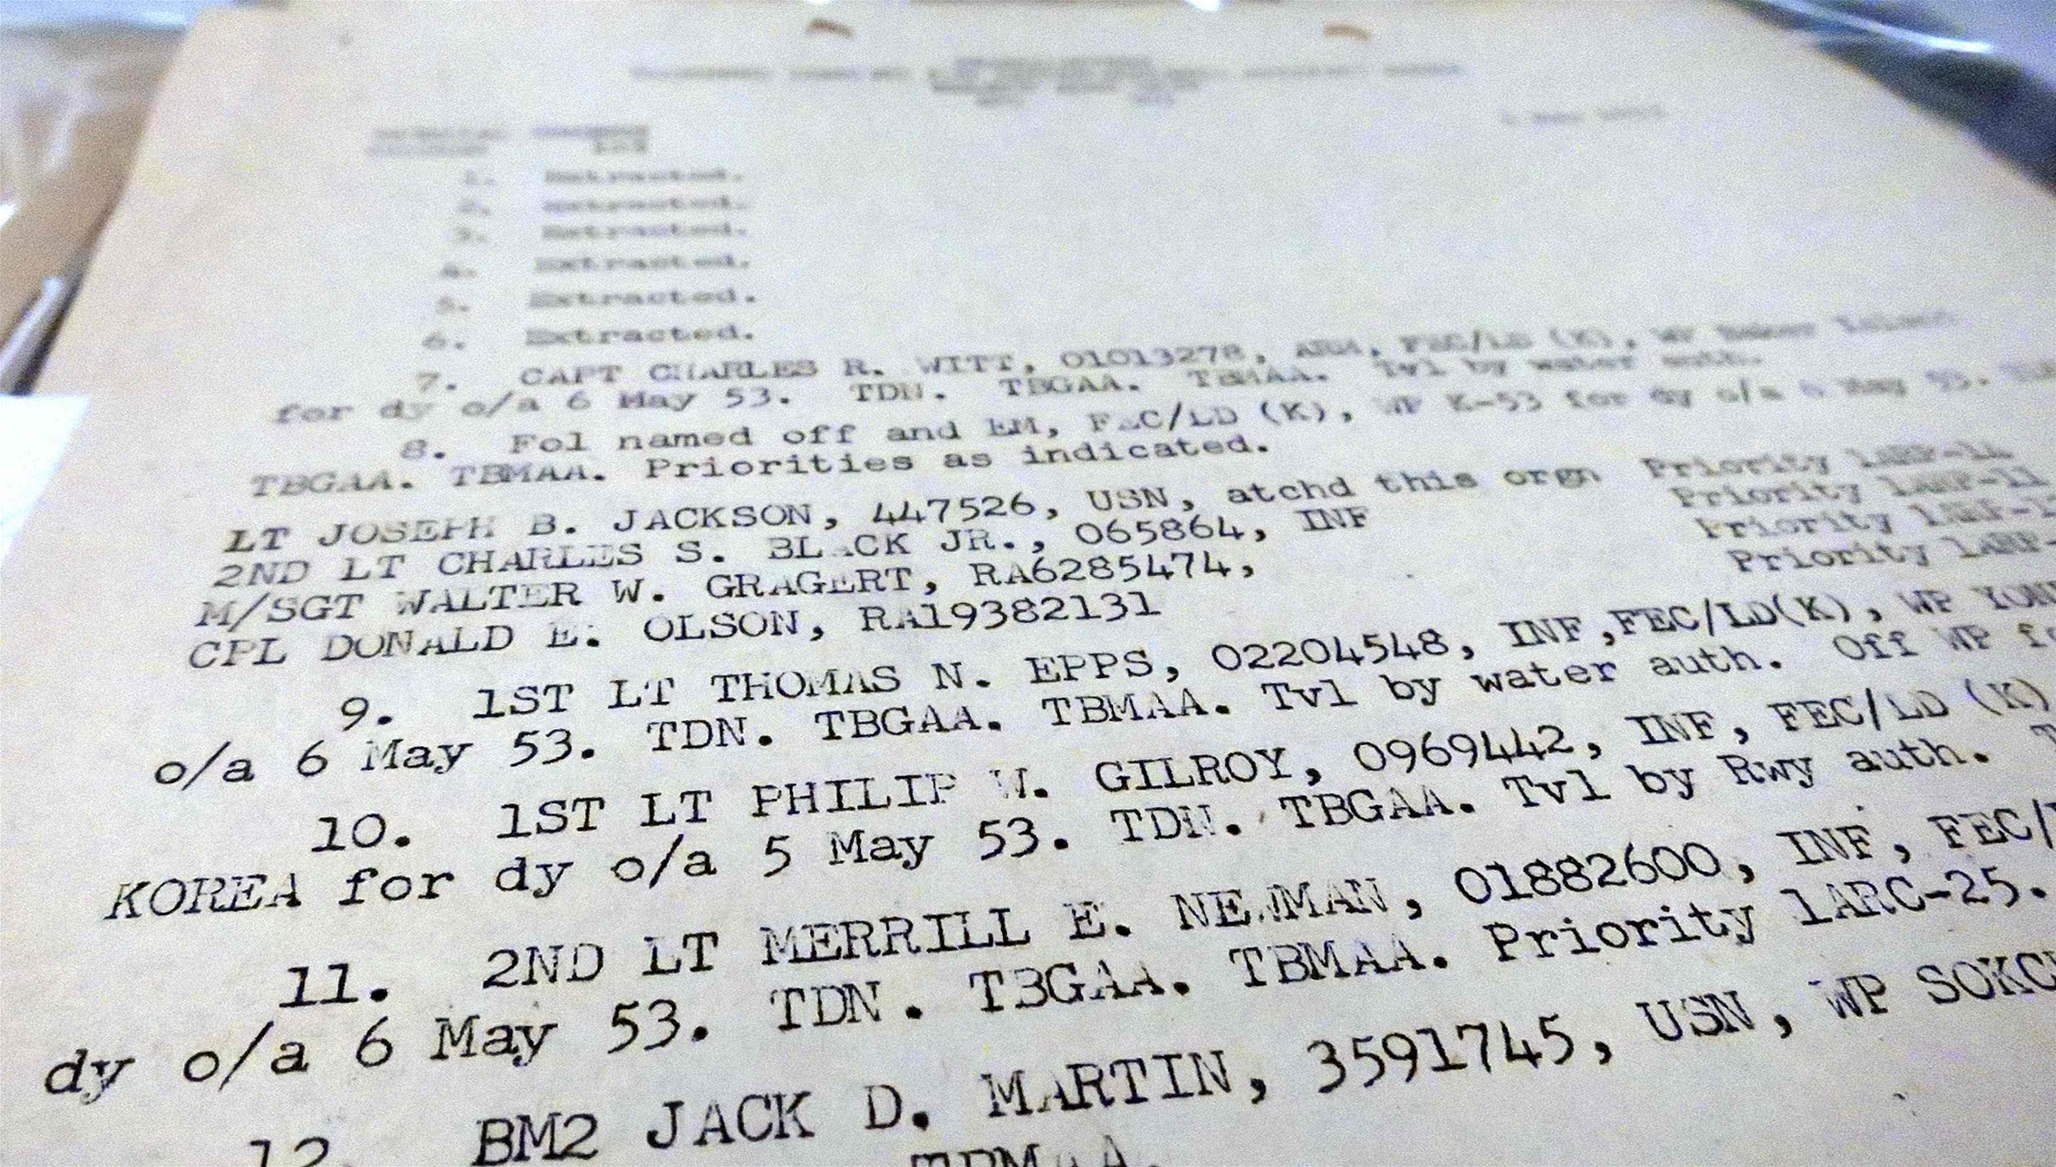 1. Extracted.
2. Extracted.
3. Extracted.
4. Extracted.
5. Extracted.
6. Extracted.
7. CAPT CHARLES R. WITT, 01013278, FEC/LD (K), WP Baker Island
for dy o/a 6 May 53. TDN. TBGAA. TBMAA. Tvl by water auth.
8. Fol named off and EM, FEC/LD (K), WP K-53 for dy o/a 6 May 53.
TBGAA. TBMAA. Priorities as indicated.
LT JOSEPH B. JACKSON, 447526, USN, atchd this orgn Priority
2ND LT CHARLES S. BLACK JR., 065864, INF Priority
M/SGT WALTER W. GRAGERT, RA6285474, Priority
CPL DONALD E. OLSON, RA19382131 Priority
9. 1ST LT THOMAS N. EPPS, 02204548, INF,FEC/LD(K), WP
o/a 6 May 53. TDN. TBGAA. TBMAA. Tvl by water auth. Off WP
10. 1ST LT PHILIP W. GILROY, 0969442, INF, FEC/LD (K)
KOREA for dy o/a 5 May 53. TDN. TBGAA. Tvl by Rwy auth.
11. 2ND LT MERRILL E. NEWMAN, 01882600, INF, FEC/
dy o/a 6 May 53. TDN. TBGAA. TBMAA. Priority 1ARC-25.
12. BM2 JACK D. MARTIN, 3591745, USN, WP
TBMAA.